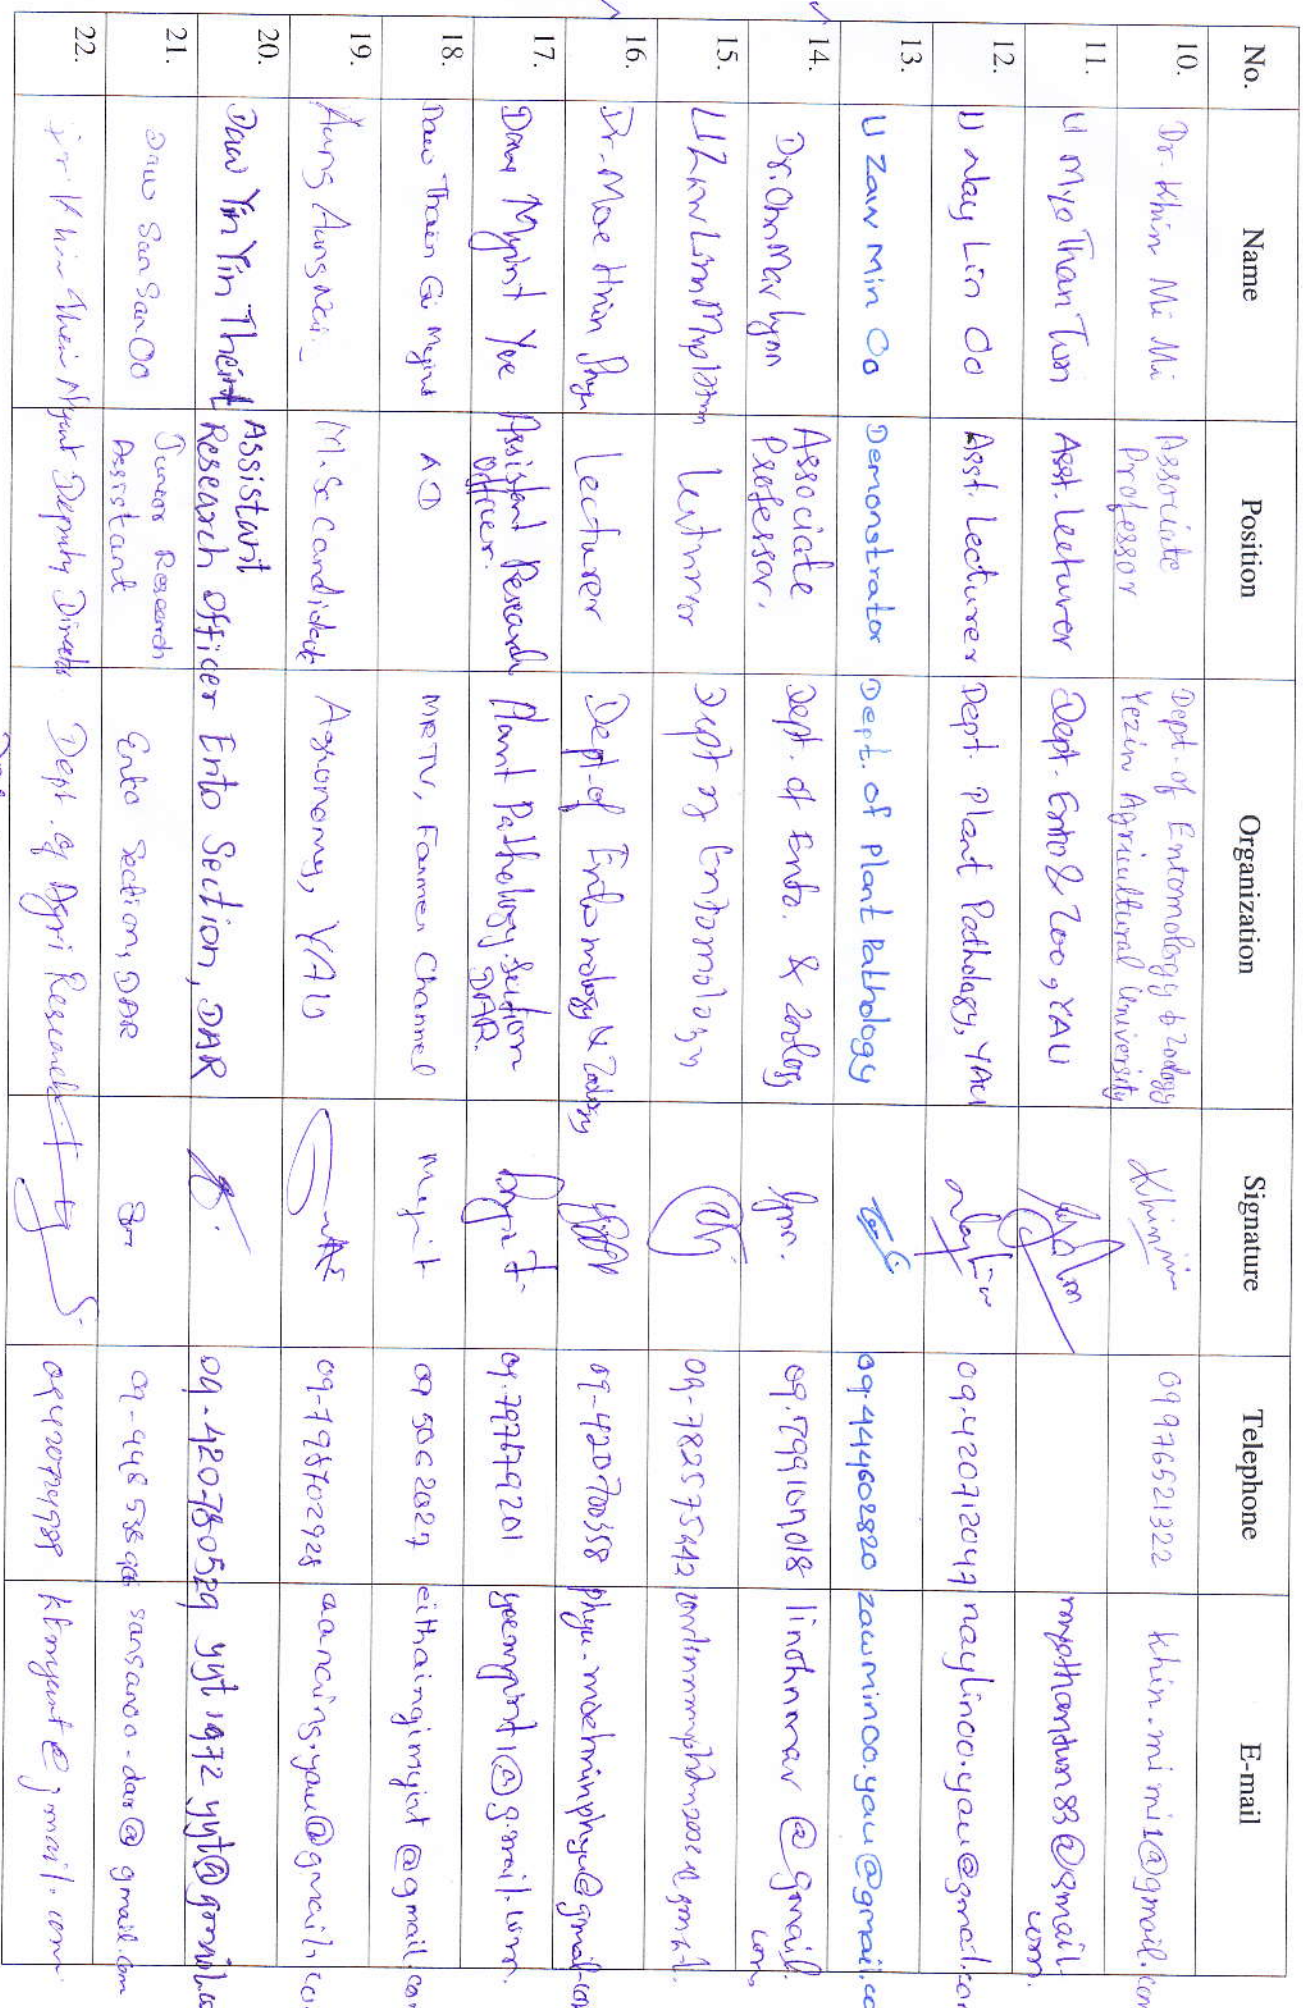 No. Name Position Organization Signature Telephone E-mail
10. Dr. Khin Mi Mi Associate Professor Dept. of Entomology & Zoology Yezin Agricultural University 09976521322 khin.mimi1@gmail.com
11. U Myo Than Tun Asst. Lecturer Dept. Ento & Zoo, YAU myothantun83@gmail.com.
12. U Nay Lin Oo Asst. Lecturer Dept. Plant Pathology, YAU Naylin 09.420712047 naylinoo.yau@gmail.com
13. U Zaw Min Oo Demonstrator Dept. of Plant Pathology 09-444602820 zawminoo.yau@gmail.co
14. Dr. Ohn Mar Lynn Associate Professor. Dept. of Ento. & Zoology Lynn. linohnmar@gmail.com
15. Dept of Entomology 09-782575442
16. Dr. Moe Hnin Phyu Lecturer Dept of Entomology & Zoology 09-420700358 phyu.moehninphyu@gmail.com
17. Daw Myint Yee Assistant Research Officer. Plant Pathology Section DAR. 09.797679201 yeemyint1@gmail.com.
18. Daw Thain Gi Myint AD MRTV, Farmer Channel Myint 09 5062027 eithaingimyint@gmail.com
19. Aung Aung Naing M.Sc Candidate Agronomy, YAU 09-798702928 aanaing.yau@gmail.co
20. Daw Yin Yin Theint Assistant Research Officer Ento Section, DAR 09-420780529 yyt1972yyt@gmail.co
21. Daw San San Oo Junior Research Assistant Ento Section, DAR San sansanoo.dar@gmail.com
22. Khin Thein Myunt Deputy Director Dept. of Agri Research ktmyunt@gmail.com